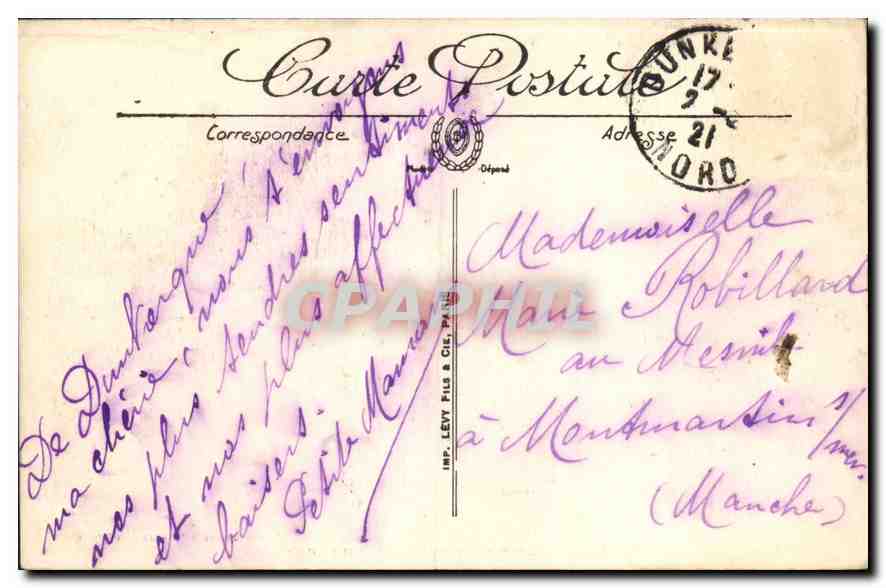 Carte Postale
Correspondance
Adresse
DUNKE
17
2
21
NORD
Déposé
De Dunkerque,
ma chérie, nous t'envoyons
nos plus tendres sentiments
et nos plus affectueux
baisers.
Petite Maman
IMP. LÉVY FILS & CIE, PARIS
Mademoiselle
Marie Robillard
au Mesnil
à Montmartin s/
mer.
(Manche)
CPAPHIL